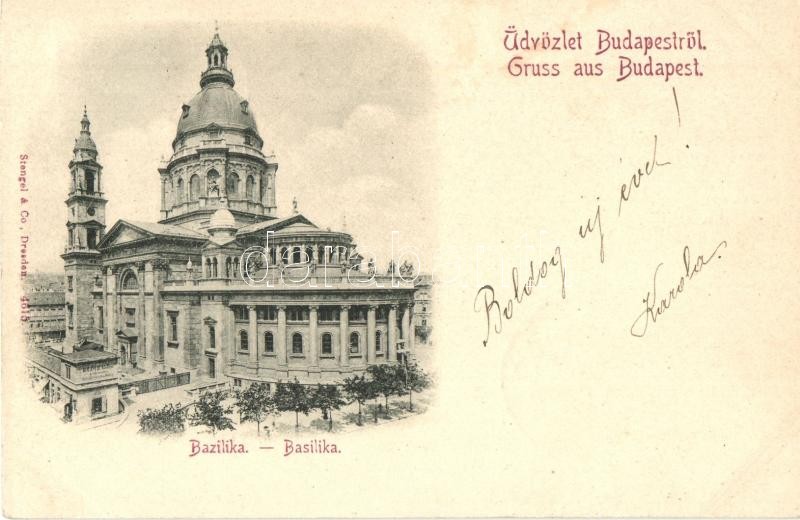 Üdvözlet Budapestről.
Gruss aus Budapest.
Boldog új évet!
Karola.
Stengel & Co., Dresden 4615
Bazilika. — Basilika.